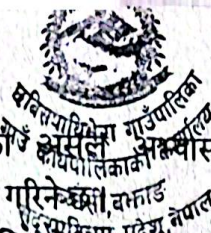 छबिसपाथिभेरा गाउँपालिका
गाउँ कार्यपालिकाको कार्यालय
असल अभ्यास
गरिनेछ
बझाङ
सुदूरपश्चिम प्रदेश, नेपाल